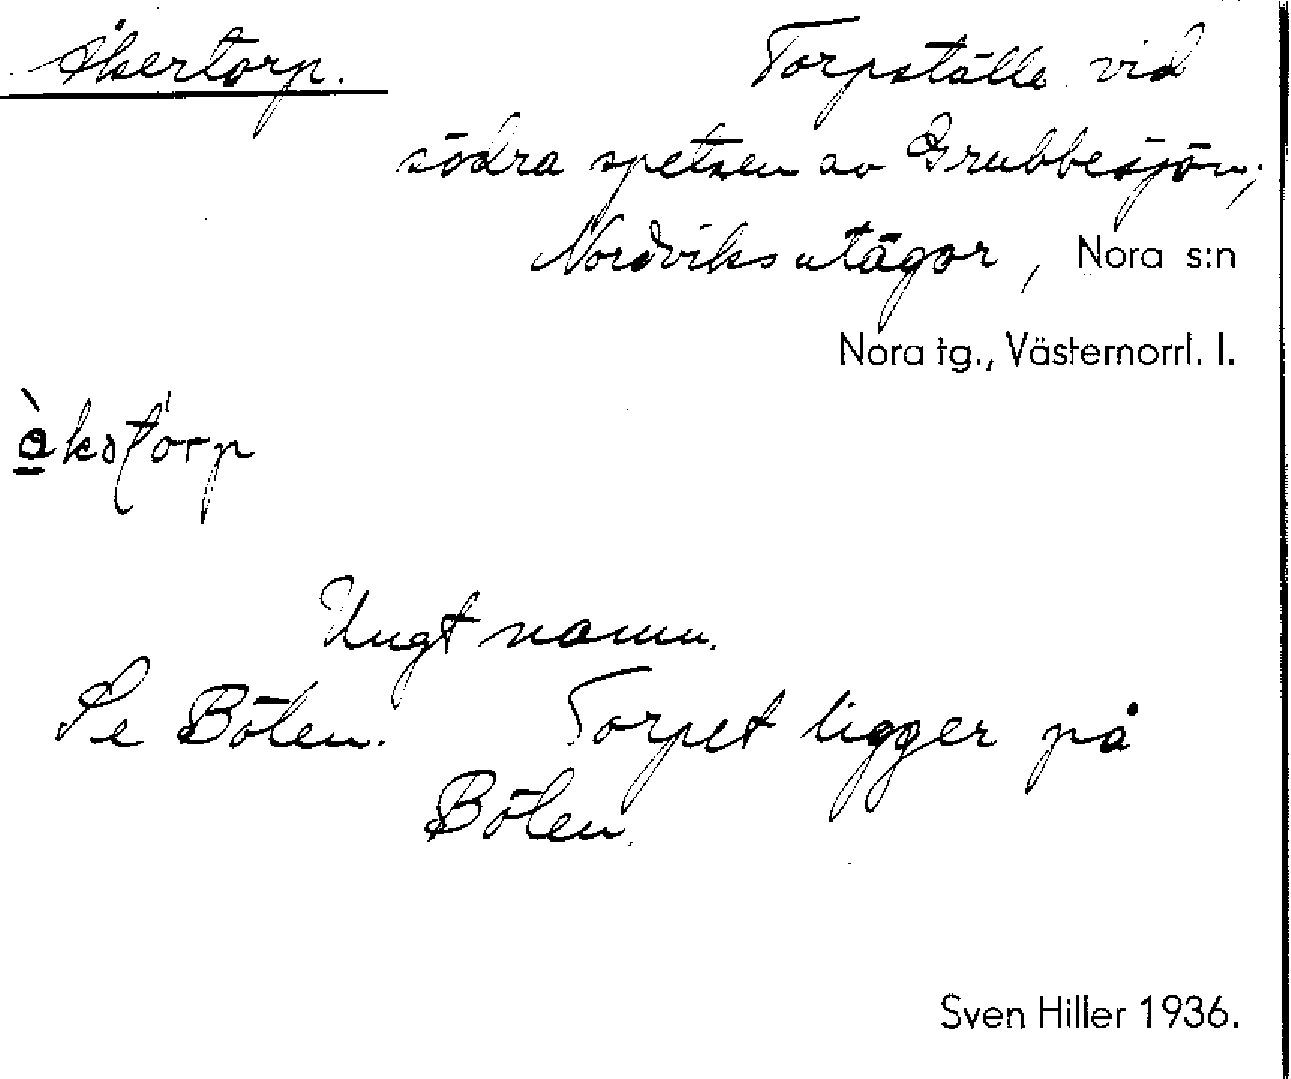 Åkertorp.
Torpställe vid
södra spetsen av Grubbesjön;
Nordviks utägor, Nora s:n
Nora tg., Västernorrl. l.
Ungt namn.
Se Bölen. Torpet ligger på
Bölen.
Sven Hiller 1936.